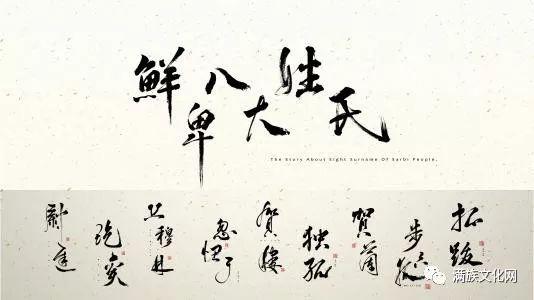 鮮卑八大姓氏
The Story About Eight Surname Of Sarbi People.
拓跋
步六孤
賀蘭
独孤
賀楼
忽忸于
丘穆林
紇奚
尉遲
满族文化网